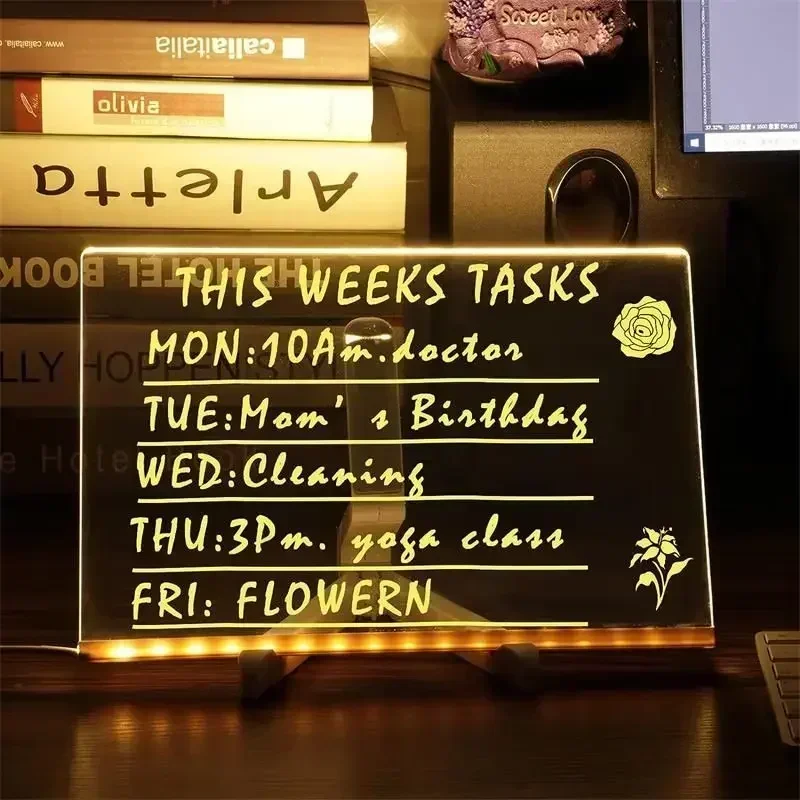 www.caliaitalia
caliaitalia
olivia
Arletta
THE HOTEL BOOK
LLY HOPPEN STY
e Hote
Sweet Lov
37.32%
THIS WEEKS TASKS
MON:10Am.doctor
TUE:Mom's Birthday
WED:Cleaning
THU:3Pm. yoga class
FRI: FLOWERN